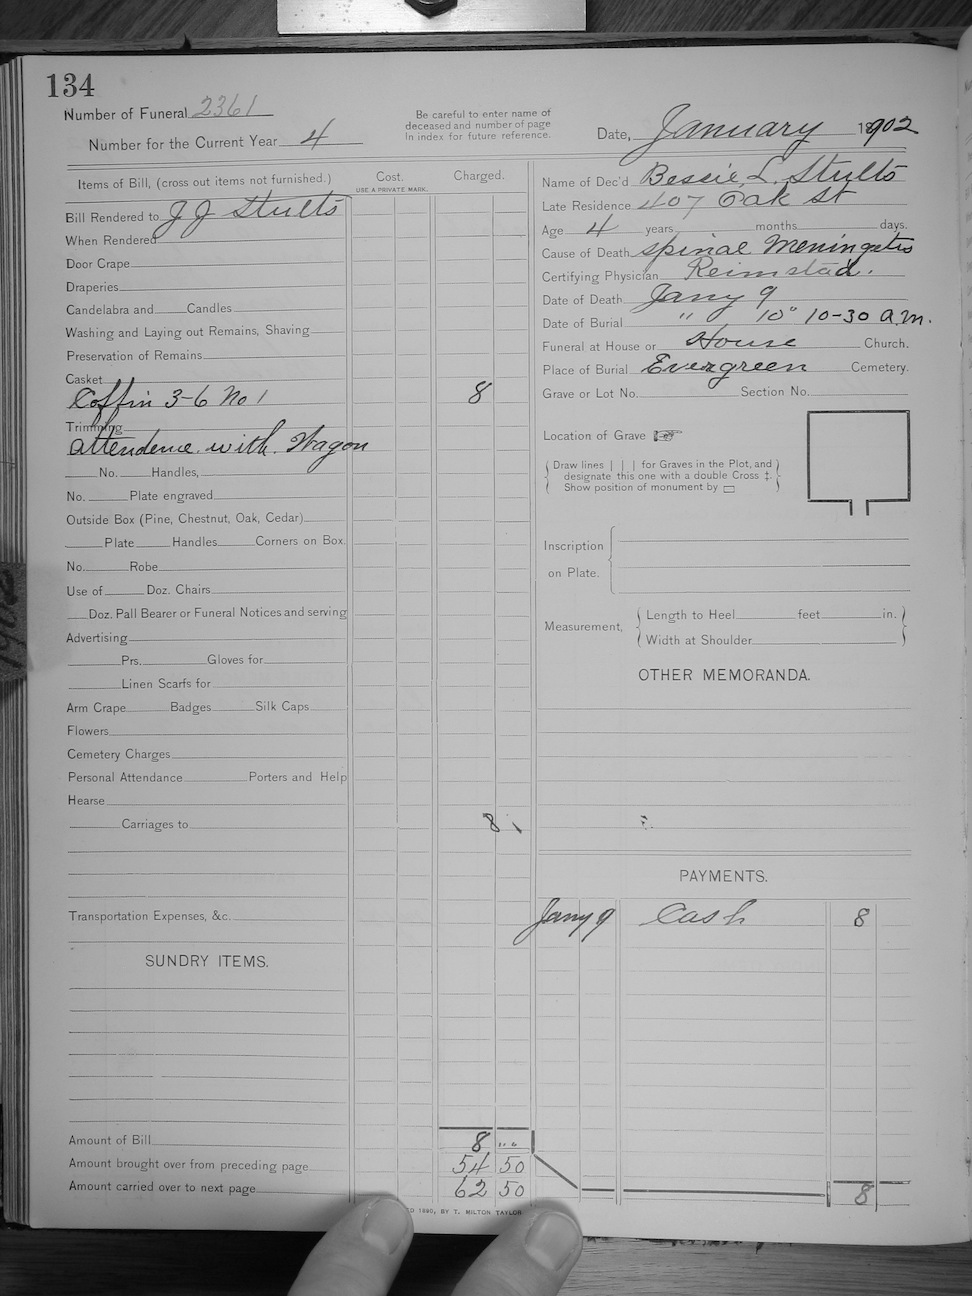 134
Number of Funeral 2361
Number for the Current Year 4
Be careful to enter name of
deceased and number of page
in index for future reference.
Date, January 1902
Items of Bill, (cross out items not furnished.)
Cost.
USE A PRIVATE MARK.
Charged.
Bill Rendered to J J Stults
When Rendered
Door Crape
Draperies
Candelabra and Candles
Washing and Laying out Remains, Shaving
Preservation of Remains
Casket
Coffin 3-6 No 1 8
Trimming
attendence with Wagon
No. Handles,
No. Plate engraved
Outside Box (Pine, Chestnut, Oak, Cedar)
Plate Handles Corners on Box.
No. Robe
Use of Doz. Chairs
Doz. Pall Bearer or Funeral Notices and serving
Advertising
Prs. Gloves for
Linen Scarfs for
Arm Crape Badges Silk Caps
Flowers
Cemetery Charges
Personal Attendance Porters and Help
Hearse
Carriages to 8
Transportation Expenses, &c.
SUNDRY ITEMS.
Amount of Bill 8 "
Amount brought over from preceding page 54 50
Amount carried over to next page 62 50
Name of Dec'd Bessie L. Stults
Late Residence 407 Oak St
Age 4 years months days.
Cause of Death spinal Meningetis
Certifying Physician Reimstad.
Date of Death Jany 9
Date of Burial " 10" 10-30 a.m.
Funeral at House or House Church.
Place of Burial Evergreen Cemetery.
Grave or Lot No. Section No.
Location of Grave
Draw lines | | | for Graves in the Plot, and
designate this one with a double Cross ‡.
Show position of monument by ▭
Inscription
on Plate.
Measurement,
Length to Heel feet in.
Width at Shoulder
OTHER MEMORANDA.
PAYMENTS.
Jany 9 Cash 8
8
D 1890, BY T. MILTON TAYLOR